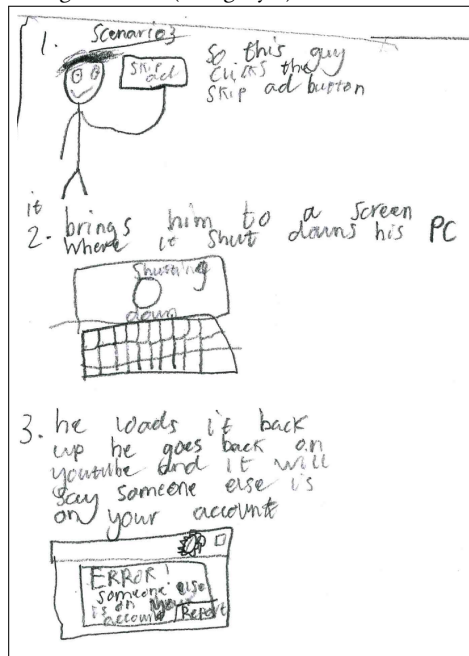 1. Scenario 3
Skip
ad
So this guy
clicks the
skip ad button
it
2. brings him to a screen
where it shut downs his PC
Shutting
down
3. he loads it back
up he goes back on
youtube and it will
say someone else is
on your account
ERROR!
someone else
is on your
account
Report